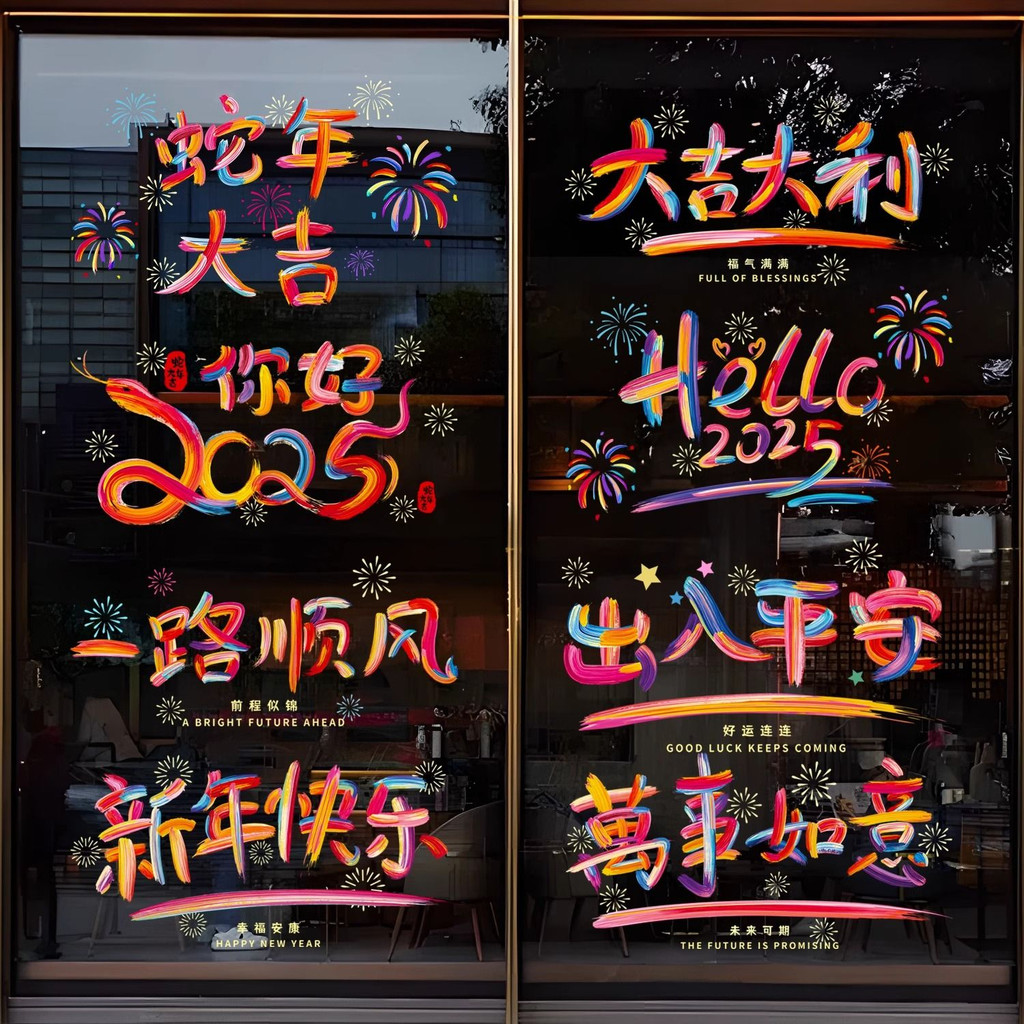 蛇年
大吉
蛇年大吉
你好
2025
蛇年大吉
一路顺风
前程似锦
A BRIGHT FUTURE AHEAD
新年快乐
幸福安康
HAPPY NEW YEAR
大吉大利
福气满满
FULL OF BLESSINGS
Hello
2025
出入平安
好运连连
GOOD LUCK KEEPS COMING
萬事如意
未来可期
THE FUTURE IS PROMISING